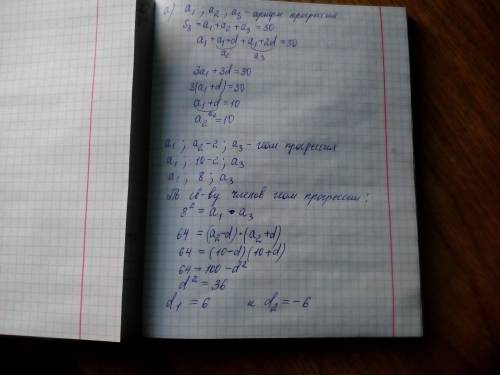 а) a1 ; a2 ; a3 - арифм прогрессия
S3 = a1 + a2 + a3 = 30
a1 + a1+d + a1+2d = 30
a2 a3
3a1 + 3d = 30
3(a1+d) = 30
a1+d = 10
a2
a2 = 10
a1 ; a2-2 ; a3 - геом прогрессия
a1 ; 10-2 ; a3
a1 ; 8 ; a3
По св-ву членов геом прогрессии:
8² = a1 • a3
64 = (a2-d)·(a2+d)
64 = (10-d)(10+d)
64 = 100 - d²
d² = 36
d1 = 6 и d2 = -6